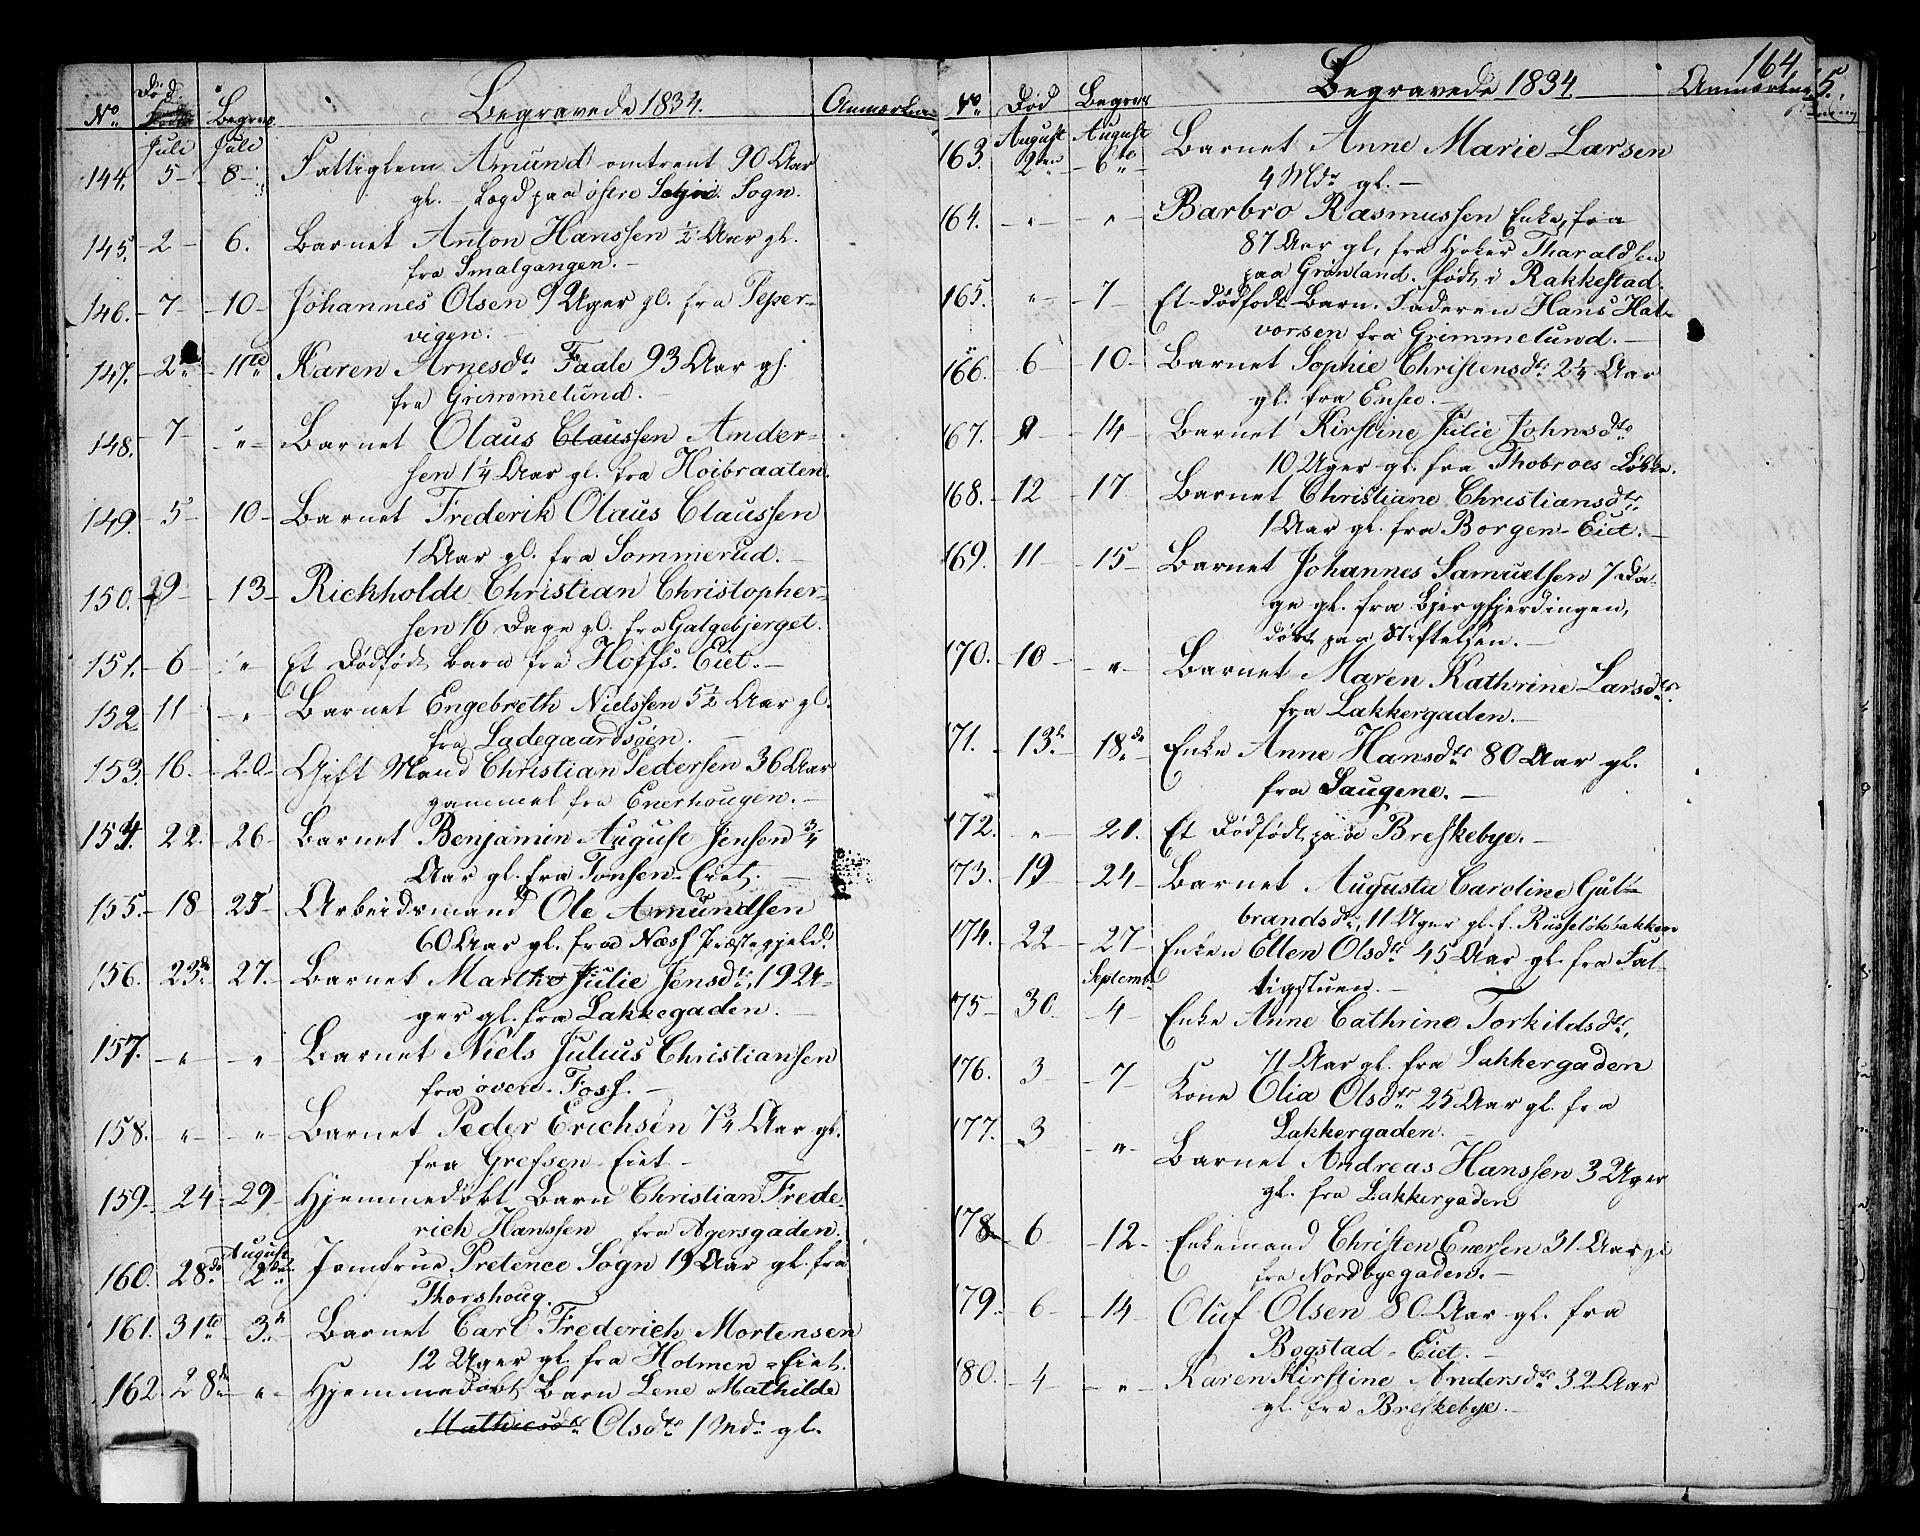 No. Død Begrav. Begravede 1834. Anmærkn.
Juli Juli
144. 5 8 Fattiglem Amund omtrent 90 Aar
gl. - Lægd paa østre Sogn.
145. 2 6. Barnet Anton Hanssen 1/2 Aar gl.
fra Smalgangen.
146. 7 10 Johannes Olsen 9 Uger gl. fra Peper-
vigen.
147. 2den 11te Karen Arnesdtr Faale 93 Aar gl.
fra Grimmelund.
148. 7 " Barnet Olaus Claussen Ander-
sen 1 1/4 Aar gl. fra Hoibraaten.
149. 5 10 Barnet Frederik Olaus Claussen
1 Aar gl. fra Sommerud.
150. 9 13 Rickholde Christian Christopher-
sen 16 Dage gl. fra Galgebjerget.
151. 6 " Et Dødfødt barn fra Hoffs-Eiet.
152 11 " Barnet Engebreth Nielssen 5 1/2 Aar gl.
fra Ladegaardsøen.
153. 16. 20 Gift Mand Christian Pedersen 36 Aar
gammel fra Enerhougen.
154. 22. 26 Barnet Benjamin August Jensen 3/4
Aar gl. fra Tonsen-Eiet.
155. 18 25 Arbeidsmand Ole Amundsen
60 Aar gl. fra Næss Præstegjeld.
156. 23de 27. Barnet Marthe Julie Jensdtr, 19 U-
ger gl. fra Lakkegaden.
157. " " Barnet Niels Julius Christianssen
fra øvere Foss.
158. " " Barnet Peder Erichsen 7 3/4 Aar gl.
fra Grefsen-Eiet
159. 24 29 Hjemmedøbt Barn Christian Frede-
rich Hanssen fra Agersgaden.
August
160. 28de 2den Jomfrue Pretence Sogn 19 Aar gl. fra
Thorshoug.
161. 31te 3de Barnet Carl Frederich Mortensen
12 Uger gl. fra Holmen-Eiet.
162. 28de " Hjemmedøbt Barn Lene Mathilde
Mathiesdtr Olsdtr 1 Md. gl.
164
No. Død Begrav Begravede 1834. Anmærkning
August August
163. 2den 6te Barnet Anne Marie Larsen
4 Mdr gl.
164. " " Barbro Rasmussen Enke, fra
87 Aar gl, fra Høker Tharaldsen
paa Grønland. født i Rakkestad.
165. " 7 Et dødfødt Barn. Faderen Hans Hal-
vorsen fra Grimmelund.
166. 6 10 Barnet Sophie Christensdtr 2 1/4 Aar
gl. fra Enseo.
167. 9 14 Barnet Kirstine Julie Johnsdtr
10 Uger gl. fra Thobroes Løkke.
168. 12 17 Barnet Christiane Christiansdtr
1 Aar gl. fra Borgen-Eiet.
169. 11 15 Barnet Johannes Samuelsen 7 Da-
ge gl. fra Bjergfjerdingen,
døbt paa Stiftelsen.
170. 10 " Barnet Maren Kathrine Larsdtr
fra Lakkergaden.
171. 13de 18de Enke Anne Hansdtr 80 Aar gl.
fra Saugene.
172. " 21. Et Dødfødt paa Breskebye.
173. 19 24 Barnet Augusta Caroline Gul-
brandsdtr, 11 Uger gl. f. Russeløkbakken
174. 22 27 Enken Ellen Olsdtr 45 Aar gl. fra Fat-
tigstuen.
Septembr
175 30 4 Enke Anne Cathrine Torkildsdtr,
71 Aar gl. fra Lakkergaden
176. 3 7 Kone Olia Olsdtr 25 Aar gl. fra
Lakkergaden.
177. 3 " Barnet Andreas Hanssen 3 Uger
gl. fra Lakkergaden
178 6 12 Enkemand Christen Enersen 31 Aar gl
fra Nordbyegaden.
179. 6 14 Oluf Olsen 80 Aar gl. fra
Bogstad-Eiet.
180. 4 " Karen Kirstine Andersdtr 32 Aar
gl. fra Breskebye.